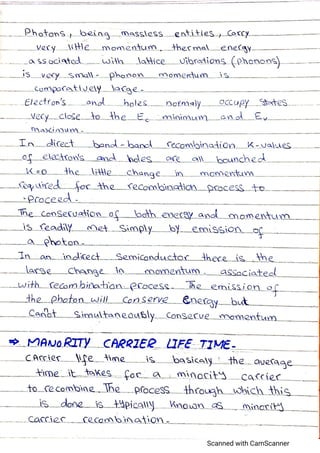 Photons, being massless entities, Carry
very little momentum. thermal energy
associated with lattice vibrations (phonons)
is very small - phonon momentum is
comparatively large.
Electron's and holes normaly occupy States
very close to the Ec minimum and Ev
maximum.
In direct band-band recombination K-values
of electron's and holes are all bounched
K=0 the little change in momentum
required for the recombination process to
proceed.
The conservation of both energy and momentum
is readily met simply by emission of
a photon.
In an indirect Semiconductor there is the
large Change In momentum. associated
with recombination process. The emission of
the photon will conserve Energy but
Canot Simultaneously conserve momentum
⇒ MANORITY CARRIER LIFE TIME-
CArrier life time is basicaly the average
time it takes for a minority carrier
to recombine. The process through which this
is done is typically known as minority
Carrier recombination.
Scanned with CamScanner